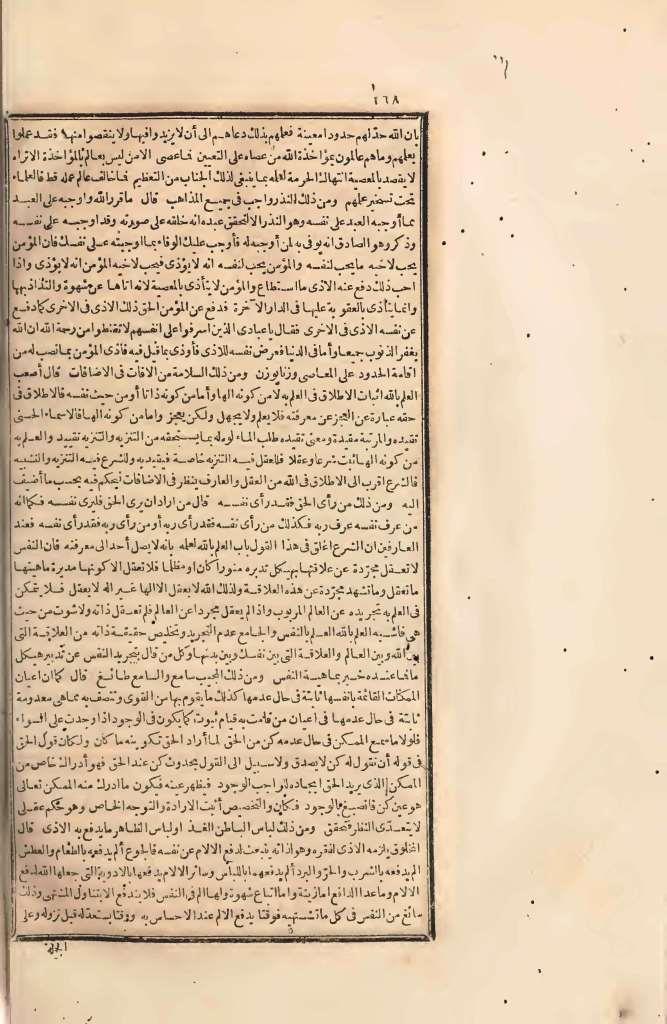 ٤٦٨
بان الله حد لهم حدودا معينة فعلهم بذلك دعاهم الى أن لا يزيدوا فيها ولا ينقصوا منها فقد عملوا
بعلمهم وماهم عالمون بمؤاخذة الله من عصاه على التعيين فما عصى الامن ليس بعالم بالمؤاخذة الاتراه
لا يقصد بالمعصية انتهاك الحرمة لعلمه بما ينبغى لذلك الجناب من التعظيم فما خالف عالم علمه قط فالعلماء
تحت تسخير علمهم ومن ذلك النذر واجب فى جميع المذاهب قال ما قرر الله واوجبه على العبد
بما أوجبه العبد على نفسه وهو النذر الا لتحقق عبده انه خلقه على صورته وقد اوجب على نفسه
وذكر وهو الصادق انه يوفى به لمن أوجبه له فأوجب عليك الوفاء بما اوجبته على نفسك فان المؤمن
يحب لاخيه ما يحب لنفسه والمؤمن يحب لنفسه انه لا يؤذى فيحب لاخيه المؤمن انه لا يؤذى واذا
احب ذلك دفع عنه الاذى ما استطاع والمؤمن لا يتأذى بالمعصية لانه اتاها عن شهوة والتذاذ بها
وانما يتأذى بالعقوبة عليها فى الدار الآخرة فدفع عن المؤمن الحق ذلك الاذى فى الاخرى كما دفع
عن نفسه الاذى فى الاخرى فقال يا عبادى الذين اسرفوا على انفسهم لا تقنطوا من رحمة الله ان الله
يغفر الذنوب جميعا وأما فى الدنيا فعرض نفسه للاذى فأوذى بما قيل فيه فاذى المؤمن بما نصب له من
اقامة الحدود على المعاصى وزنا بوزن ومن ذلك السلامة من الافات فى الاضافات قال أصعب
العلم بالله اثبات الاطلاق فى العلم به لا من كونه الها وأما من كونه ذاتا أو من حيث نفسه فالاطلاق فى
حقه عبارة عن العجز عن معرفته فلا يعلم ولا يجهل ولكن يعجز واما من كونه الها فالاسماء الحسنى
تقيده والمرتبة مقيدة ومعنى تقيده طلب المألوه له بما يستحقه من التنزيه والتنزيه تقييد والعلم به
من كونه الها ثابت شرعا وعقلا فللعقل فيه التنزيه خاصة فيقيده به وللشرع فيه التنزيه والتشبيه
فالشرع اقرب الى الاطلاق فى الله من العقل والعارف ينظر فى الاضافات فيحكم فيه بحسب ما أضيف
اليه ومن ذلك من رأى الحق فقد رأى نفسه قال من اراد ان يرى الحق فليرى نفسه فكما انه
من عرف نفسه عرف ربه فكذلك من رأى نفسه فقد رأى ربه أو من رأى ربه فقد رأى نفسه فعند
العارفين ان الشرع اغلق فى هذا القول باب العلم بالله لعلمه بانه لا يصل أحد الى معرفته فان النفس
لا تعقل مجردة عن علاقتها بهيكل تدبره منورا كان او مظلما فلا تعقل الا كونها مديرة ماهيتها
ما تعقل وما تشهد مجردة عن هذه العلاقة ولذلك الله لا يعقل الا الها غير اله لا يعقل فلا يتمكن
فى العلم به تجريده عن العالم المربوب واذا لم يعقل مجردا عن العالم فلم تعقل ذاته ولا شوهدت من حيث
هى فاشبه العلم بالله العلم بالنفس والجامع عدم التجريد وتخليص حقيقة ذاته من العلاقة التى
بين الله وبين العالم والعلاقة التى بين نفسك وبين بدنها وكل من قال بتجريد النفس عن تدبير هيكل
ما فما عنده خبر بماهية النفس ومن ذلك المجيب سامع والسامع طائع قال كما ان اعيان
الممكنات القائمة بأنفسها ثابتة فى حال عدمها كذلك ما يقوم بها من القوى وتتصف به مما هى معدومة
ثابتة فى حال عدمها فى اعيان من قامت به قيام ثبوت كما يكون فى الوجود اذا وجدت على السواء
فلولا ما سمع الممكن فى حال عدمه كن من الحق لما أراد الحق تكوينه ما كان ولكان قول الحق
فى قوله أن نقول له كن لا يصدق ولا سبيل الى القول بحدوث كن عند الحق فهو أدراك خاص من
الممكن الذى يريد الحق ايجاده لواجب الوجود فيظهر عينه فيكون ما ادرك منه الممكن تعالى
هو عين كن فانصبغ بالوجود فكان والتخصيص أثبت الارادة والتوجه الخاص وهو حكم عقلى
لا يتعدى النظر فتحقق ومن ذلك لباس الباطن الغذا ولباس الظاهر ما يدفع به الاذى قال
المخلوق يلزمه الاذى لفقره وهو اذا انه ينبعث لدفع الالام عن نفسه فالجوع ألم يدفعه بالطعام والعطش
الم يدفعه بالشرب والحر والبرد ألم يدفعهما باللباس وسائر الالام يدفعها بالادوية التى جعلها الله لدفع
الالام وما عدا الدافع اما زينة واما اتباع شهوة ولها الم فى النفس فلا يندفع الا بتناول المشتهى وذلك
سائغ من النفس فى كل ما تشتهيه فوقتا يدفع الالم عند الاحساس به ووقتا يستعد له قبل نزوله وعلى
الجملة